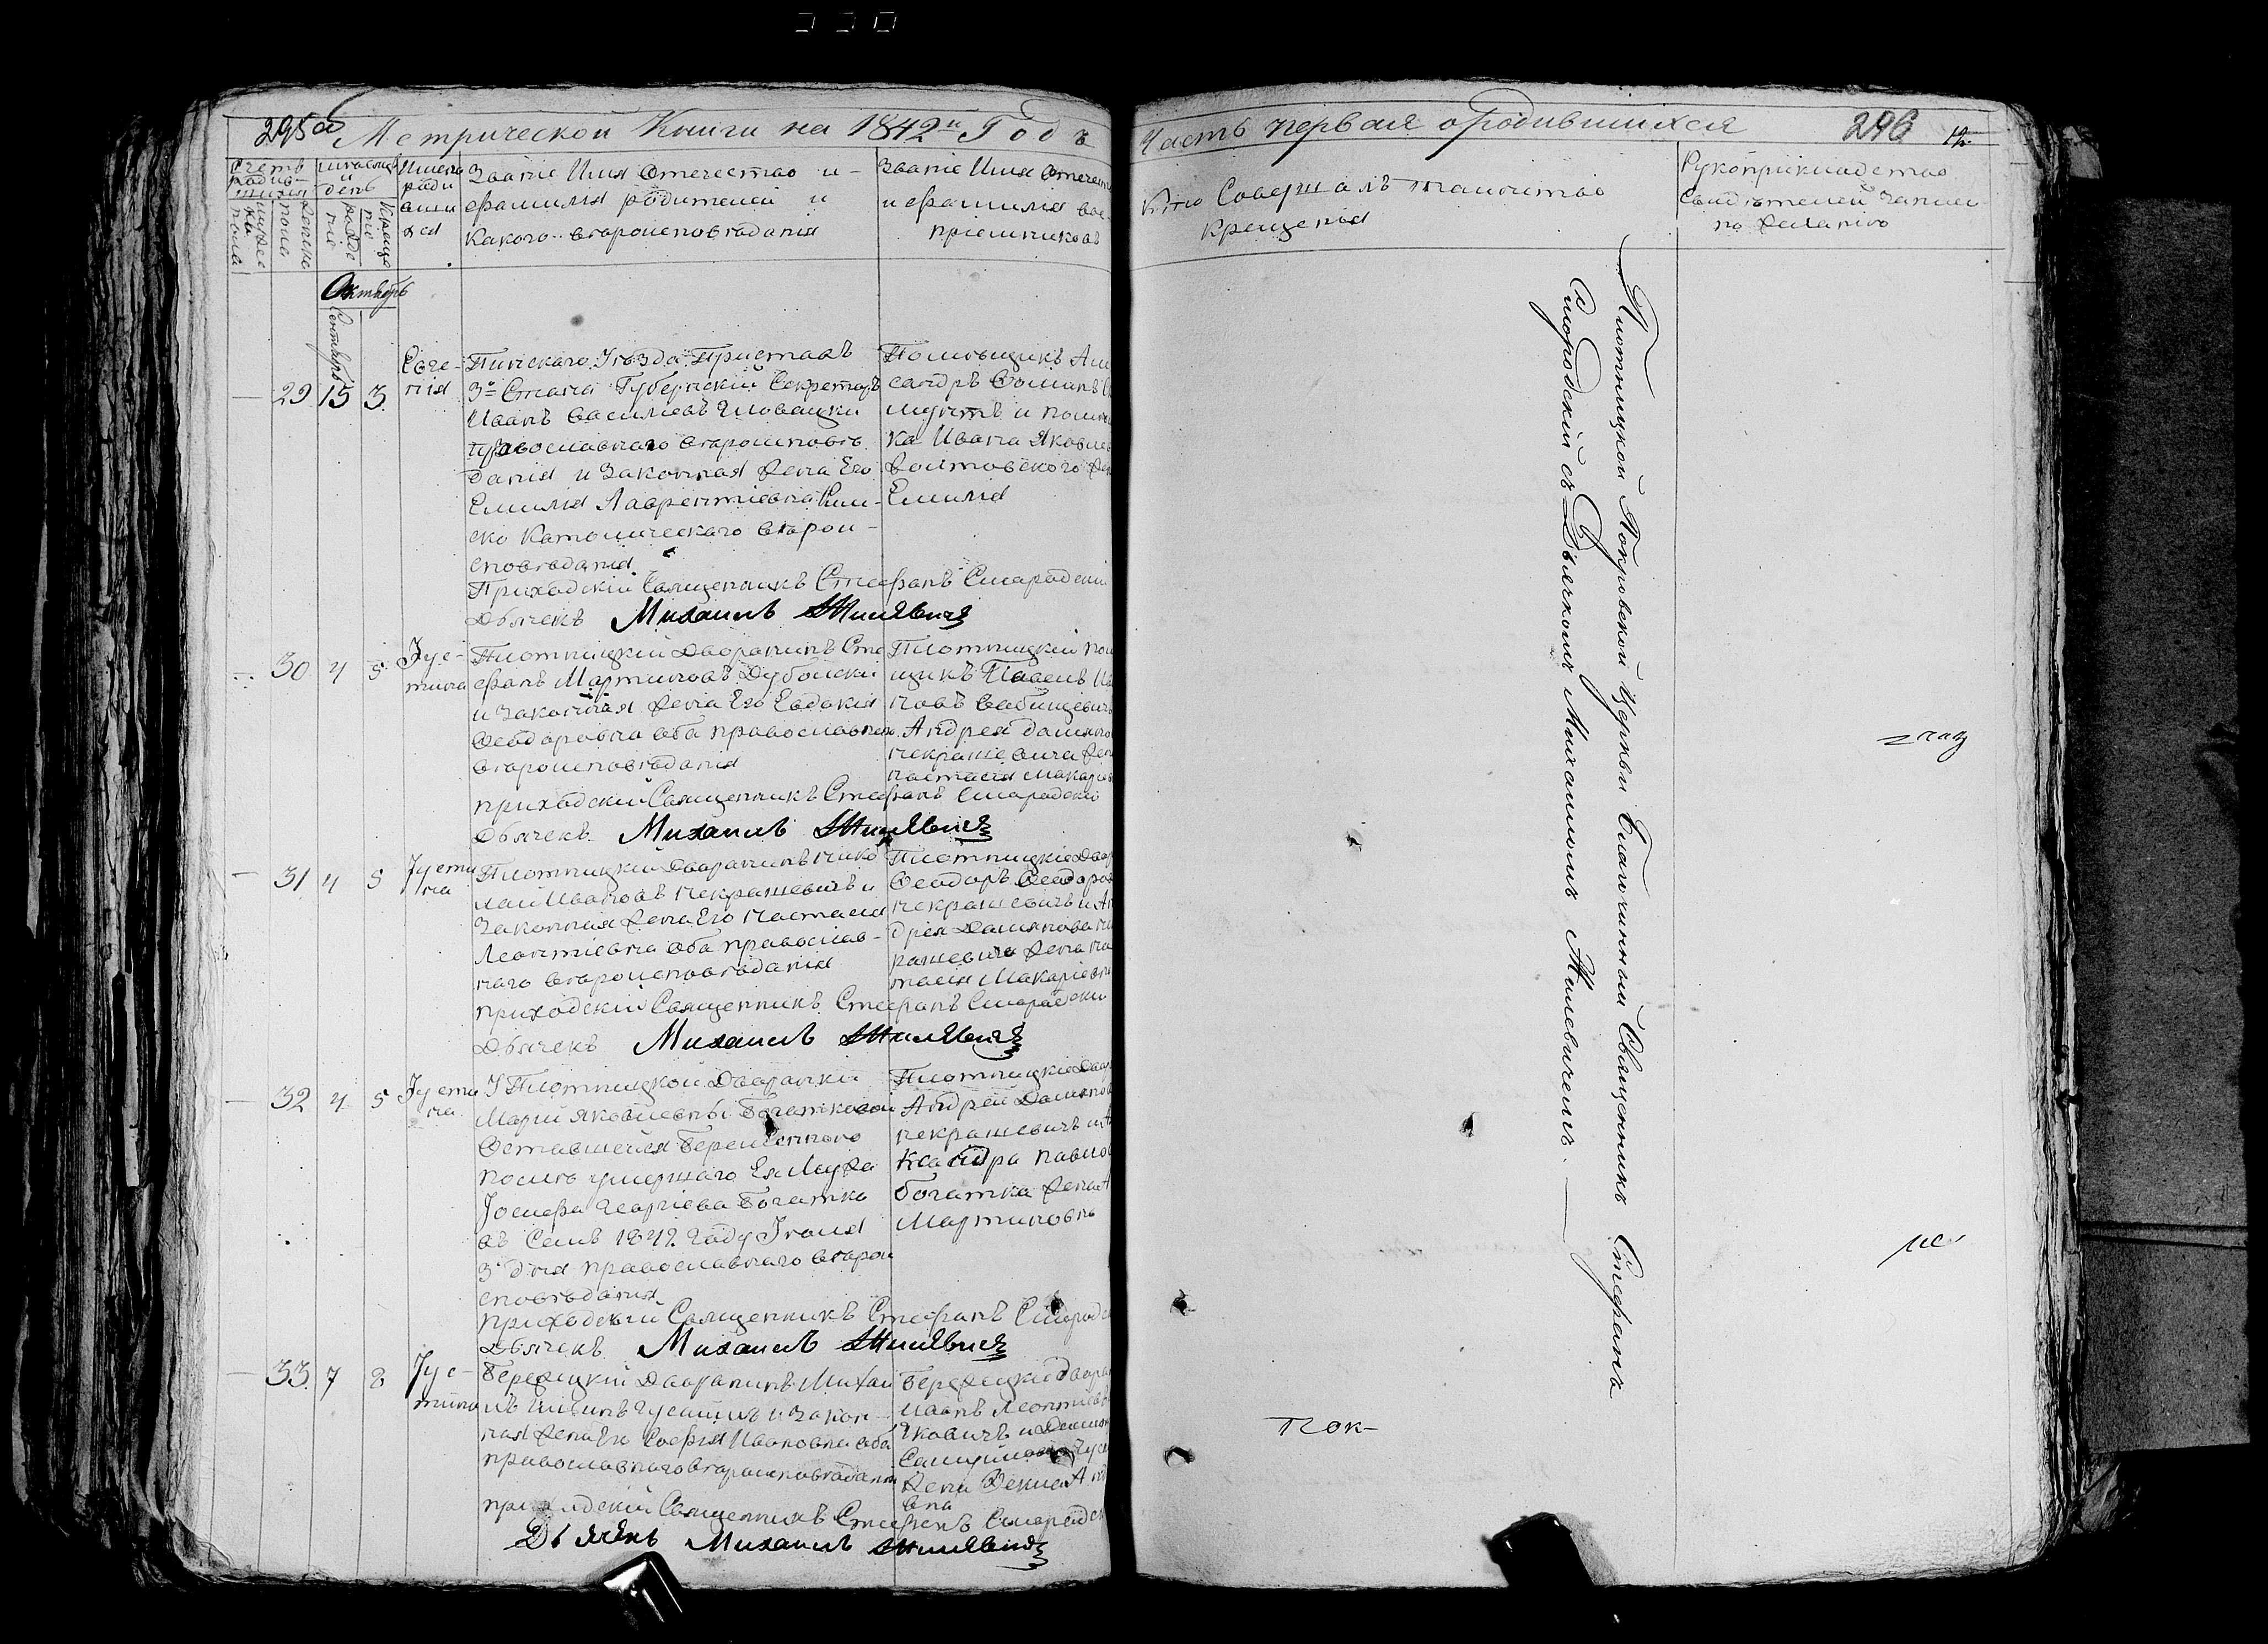 295об Метрической Книги на 1842й Годъ
Счетъ родившихся
мужеска пола
женска пола
Месяцъ и день
рожденіе
крещеніе
Имена родившихся
Званіе Имя Отечество и
фамилія родителей и
Какого вѣроисповѣданія
Званіе Имя Отечест
и фамилія вос-
пріемниковъ
Октябрь
Сентябрь
29 15 3
Евге-
нія
Пинскаго Уѣзда Приставъ
3го Стана Губернскій Секретарь
Иванъ Васильевъ
православнаго вѣроисповѣ
данія и Законная Жена Его
Емилія Лаврентіевна Рим-
ско Католическаго вѣрои-
сповѣданія
Помѣщикъ Але
сандръ Фоминъ
и помѣщи
ка Ивана Яковле
Же
Емилія
Приходскій Священникъ Стефанъ Смородскій
Дьячекъ Михаилъ Жилевичъ
30 4 5
Іус-
тина
Плотницкій Дворянинъ Сте
фанъ Мартиновъ Дубойскій
и Законная Жена Его Евдокія
Феодоровна оба православнаго
вѣроисповѣданія
Плотницкій пом
щикъ Павелъ Ив
новъ Бабицевичъ
Андрея Дамяно
некрашевича Жена
настасія Макарев
приходскій Священникъ Стефанъ Смородскій
Дьячекъ Михаилъ Жилевичъ
31 4 5
Іусти
на
Плотницкій Дворянинъ нико
лай Ивановъ некрашевичъ и
Законная Жена Его настасія
Леонтіевна оба православ-
наго вѣроисповѣданія
Плотницкіе Двор
Феодоръ Феодоров
некрашевичъ и Ан
дрея Дамянова нек
рашевича Жена на
тасія Макаріевн
приходскій Священникъ Стефанъ Смородскій
Дьячекъ Михаилъ Жилевичъ
32 4 5
Іусти
на
У Плотницкой Дворянки
Маріи Яковлевны Богатковой
Оставшейся беременною
послѣ умершаго Ея Мужа
Іосифа Георгіева Богатко
въ Семъ 1842 году Іюля
3 дня православнаго вѣрои
сповѣданія
Плотницкіе Двор
Андрей Дамянов
некрашевичъ и Ал
ксандра павлов
богатка Жена А
Мартиновна
приходскій Священникъ Стефанъ Смородск
Дьячекъ Михаилъ Жилевичъ
33 7 8
Іус-
тина
Бережицкій Дворянинъ Михаи
лъ и Закон-
ная Жена Его Софія Ивановна оба
православнаго вѣроисповѣданія
Бережицкіе Дворя
Иванъ Леонтіевъ
Жена
вна
приходскій Священникъ Стефанъ Смородск
Дьячекъ Михаилъ Жилевичъ
Часть первая о родившихся 296 12
Кто Совершалъ таинство
Крещенія
Рукоприкладство
Свидѣтелей записи
по желанію
Плотницкой Покровской Церкви Благочинный Священникъ Стефанъ
Смородскій съ Дьячкомъ Михаиломъ Жилевичемъ.
Пок-